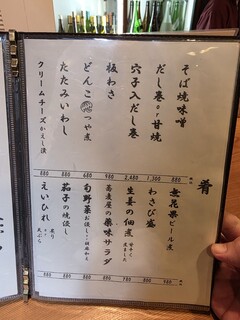 肴
そば焼味噌
だし巻 or 甘焼
穴子入だし巻
板わさ
どんこつや煮
たたみいわし
クリームチーズかえし漬
880
1,300
2,480
980
680
680
880
無花果ビール煮
わさび盛
生姜の佃煮
蕎麦屋の薬味サラダ
旬野菜お浸し
茄子の焼浸し
えいひれ 炙り or 天ぷら